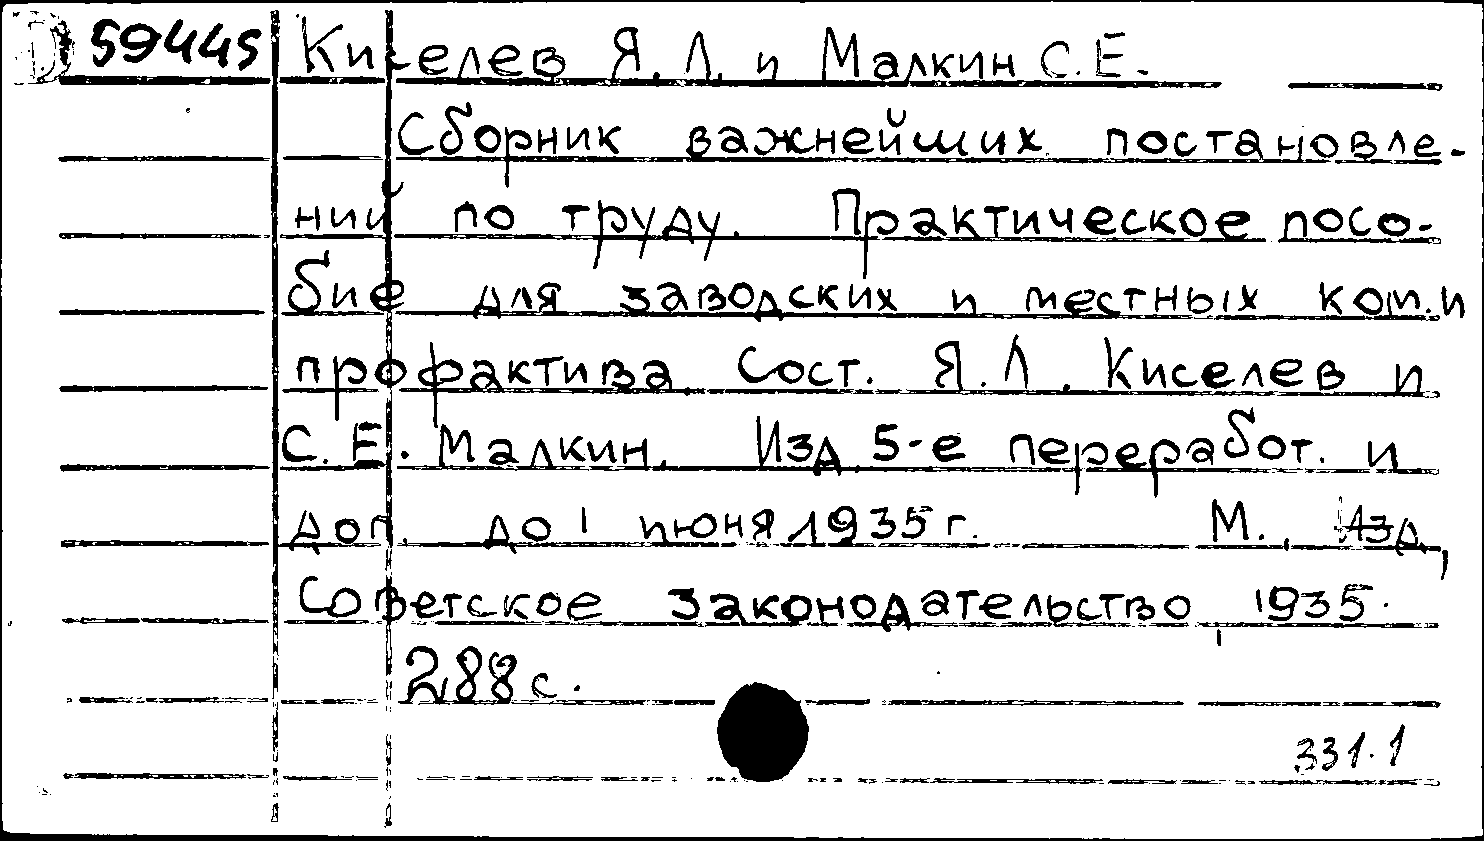 D 59445 Киселев Я. Л. и Малкин С. Е.
Сборник важнейших постановле-
ний по труду. Практическое посо-
бие для заводских и местных ком. и
профактива. Сост. Я. Л. Киселев и
С. Е. Малкин. Изд. 5-е переработ. и
доп. до 1 июня 1935 г. М., Изд,
Советское законодательство, 1935.
288 с.
331.1